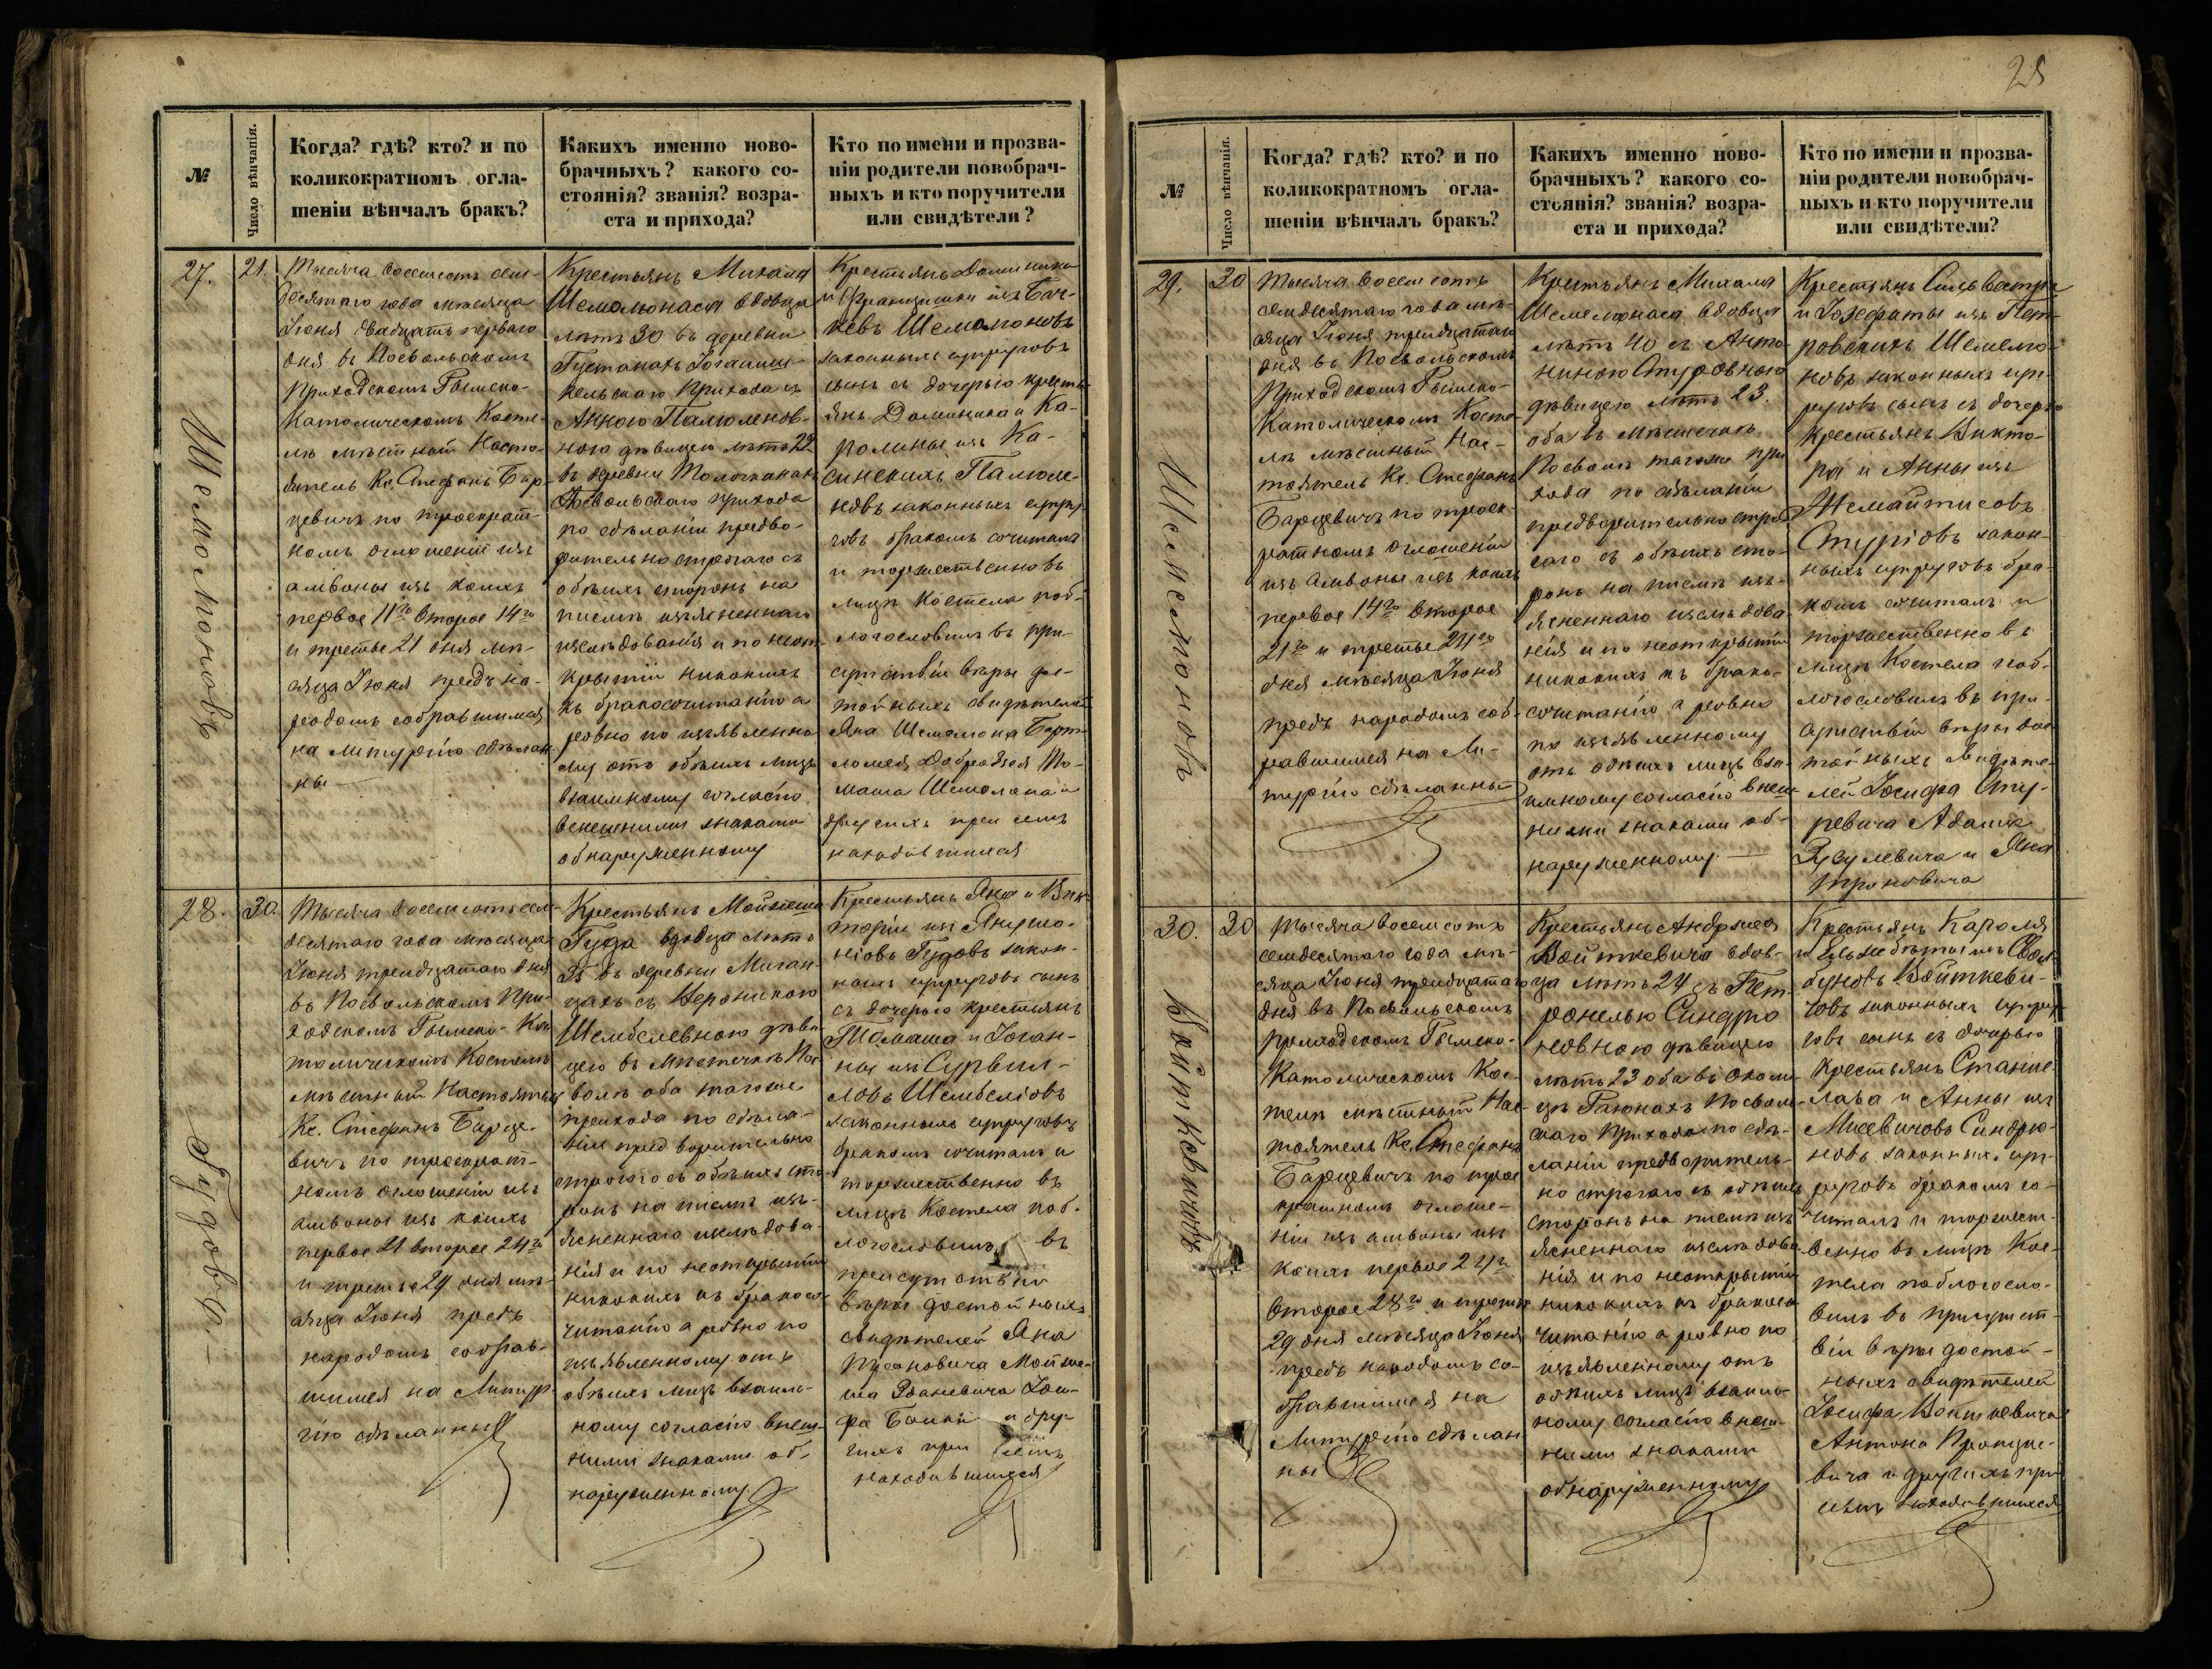 28
№
Число вѣнчанія.
Когда? гдѣ? кто? и по
коликократномъ огла-
шеніи вѣнчалъ бракъ?
Какихъ именно ново-
брачныхъ? какого со-
стоянія? званія? возра-
ста и прихода?
Кто по имени и прозва-
ніи родители новобрач-
ныхъ и кто поручители
или свидѣтели?
27.
Шемамоновъ
21.
Тысяча восемсотъ сем-
десятаго года мѣсяца
Іюня двадцать перваго
дня въ Посвольскомъ
Приходскомъ Римско-
Католическомъ Косте-
лѣ мѣстный Насто-
ятель Кс. Стефанъ Бар-
цевичъ по троекрат-
номъ оглошеніи изъ
амвоны изъ коихъ
первое 11го второе 14го
и третье 21 дня мѣ-
сяца Іюня предъ на-
родомъ собравшимся
на литургію сдѣлан-
ны
Крестьянъ Михала
Шемамонаса вдовца
лѣтъ 30 въ деревни
прихода съ
Анною Палюленов-
ною дѣвицею лѣтъ 22
въ деревни
Посвольскаго прихода
по сдѣланіи предво-
рительно строгаго съ
обѣихъ сторонъ на
письмѣ изъясненнаго
изслѣдованія и по неот-
крытіи никакихъ
къ бракосочитанію а
ровно по изъявленно-
му отъ обѣихъ лицъ
взаимному согласію
внешними знаками
обнаруженному
Крестьянъ Доминика
и Францишки изъ
Шемамоновъ
законныхъ супруговъ
сынъ съ дочерью кресть-
янъ Доминика и Ка-
ролины изъ Ка-
синскихъ Палюле-
новъ законныхъ супру-
говъ бракомъ сочиталъ
и торжественно въ
лицѣ Костела поб-
лагословилъ въ при-
сутствіи вѣры до-
стойныхъ свидѣтелей
Яна Шемамона Барт-
ломея
маша Шемамона и
другихъ при семъ
находившихся
28.
Гудовъ.
30.
Тысяча восемсотъ сем-
десятаго года мѣсяца
Іюня тридцатаго дня
въ Посвольскомъ При-
ходскомъ Римско-Ка-
толическомъ Костелѣ
мѣстный Настоятель
Кс. Стефанъ Барце-
вичъ по троекрат-
номъ оглошеніи изъ
амвоны изъ коихъ
первое 21 второе 24го
и третье 29 дня мѣ-
сяца Іюня предъ
народомъ собрав-
шимся на Литур-
гію сдѣланный
Крестьянъ Мойзеша
Гуда вдовца лѣтъ
въ деревни
съ Вероникою
Шембелевною дѣви-
цею въ мѣстечкѣ Пос-
волѣ оба тагоже
прихода по сдѣла-
ніи предворительно
строгаго съ обѣихъ сто-
ронъ на письмѣ изъ-
ясненнаго изслѣдова-
нія и по неоткрытіи
никакихъ къ бракосо-
читанію а ровно по
изъявленному отъ
обѣихъ лицъ взаим-
ному согласію внеш-
ними знаками об-
наруженному
Крестьянъ Яна и Вик-
торіи изъ
Гудовъ закон-
ныхъ супруговъ сынъ
съ дочерью крестьянъ
Томаша и Іоган-
ны изъ Сурвил-
ловъ Шембеліовъ
законныхъ супруговъ
бракомъ сочиталъ и
торжественно въ
лицѣ Костела поб-
логословилъ въ
присутствіи
вѣры достойныхъ
свидѣтелей Яна
Мойзе-
ша Іози-
фа и дру-
гихъ при семъ
находившихся
№
Число вѣнчанія.
Когда? гдѣ? кто? и по
коликократномъ огла-
шеніи вѣнчалъ бракъ?
Какихъ именно ново-
брачныхъ? какого со-
стоянія? званія? возра-
ста и прихода?
Кто по имени и прозва-
ніи родители новобрач-
ныхъ и кто поручители
или свидѣтели?
29.
Шемемоновъ
30
Тысяча восемсотъ
семдесятаго года мѣ-
сяца Іюня тридцатаго
дня въ Посвольскомъ
Приходскомъ Римско-
Католическомъ Косте-
лѣ мѣстный Нас-
тоятель Кс. Стефанъ
Барцевичъ по троек-
ратномъ оглошеніи
изъ амвоны изъ коихъ
первое 14го второе
21го и третье 24го
дня мѣсяца Іюня
предъ народомъ соб-
равшимся на Ли-
тургію сдѣланный
Крестьянъ Михала
Шемемонаса вдовца
лѣтъ 40 съ Анто-
ниною Стуровною
дѣвицею лѣтъ 23.
оба въ мѣстечкѣ
Посволѣ тагоже при-
хода по сдѣланіи
предворительно стро-
гаго съ обѣихъ сто-
ронъ на письмѣ изъ-
ясненнаго изслѣдова-
нія и по неоткрытіи
никакихъ къ брако-
сочитанію а ровно
по изъявленному
отъ обѣихъ лицъ вза-
имному согласію внеш-
ними знаками об-
наруженному
Крестьянъ Сильвестра
и Іозефаты изъ Пет-
ровскихъ Шемемо-
новъ законныхъ суп-
руговъ сынъ съ дочерью
крестьянъ Викто-
ра и Анны изъ
Жемайтисовъ
Стуріовъ закон-
ныхъ супруговъ бра-
комъ сочиталъ и
торжественно въ
лицѣ Костела поб-
логословилъ въ при-
сутствіи вѣры дос-
тойныхъ свидѣте-
лей Іосифа Сту-
ревича Адама
и Яна
30.
Войткевичовъ
30
Тысяча восемсотъ
семдесятаго года мѣ-
сяца Іюня тридцатаго
дня въ Посвольскомъ
приходскомъ Римско-
Католическомъ Кос-
телѣ мѣстный Нас-
тоятель Кс. Стефанъ
Барцевичъ по трое-
кратномъ оглоше-
ніи изъ амвоны изъ
коихъ первое 24го
второе 28го и третье
29 дня мѣсяца Іюня
предъ народомъ со-
бравшимся на
Литургію сдѣлан-
ны
Крестьянъ Андржея
Войткевича вдов-
ца лѣтъ 24 съ Пет-
ронелью Синдрю-
новною дѣвицею
лѣтъ 23 оба въ околи-
цѣ Посволь-
скаго Прихода по сдѣ-
ланіи предворитель-
но строгаго съ обѣихъ
сторонъ на письмѣ изъ-
ясненнаго изслѣдова-
нія и по неоткрытіи
никакихъ къ бракосо-
читанію а ровно по
изъявленному отъ
обѣихъ лицъ взаим-
ному согласію внеш-
ними знаками
обнаруженному
Крестьянъ Кароля
и Ельжбеты изъ
Войткеви-
човъ законныхъ супру-
говъ сынъ съ дочерью
Крестьянъ Станис-
лава и Анны изъ
Мисевичовъ Синдрю-
новъ законныхъ суп-
руговъ бракомъ со-
читалъ и торжест-
венно въ лицѣ Кос-
тела поблогосло-
вилъ въ присутст-
віи вѣры достой-
ныхъ свидѣтелей
Іосифа Войткевича
Антона
и другихъ при
семъ находившихся